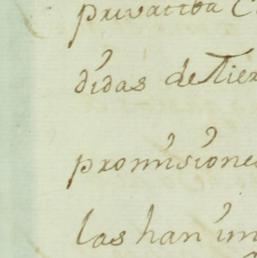 privativa C
didas de Tier
promisione
las han im